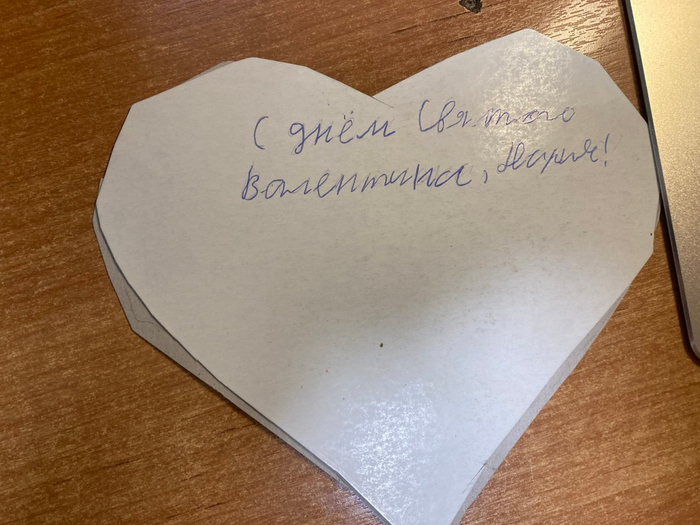 С днём Святого
Валентина,